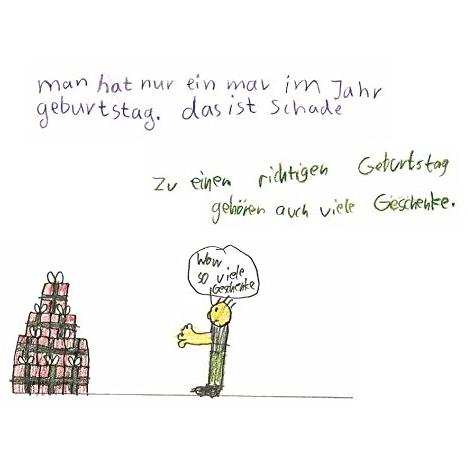 man hat nur ein mal im Jahr
geburtstag. das ist Schade
Zu einen richtigen Geburtstag
gehören auch viele Geschenke.
Wow
so viele
Geschenke